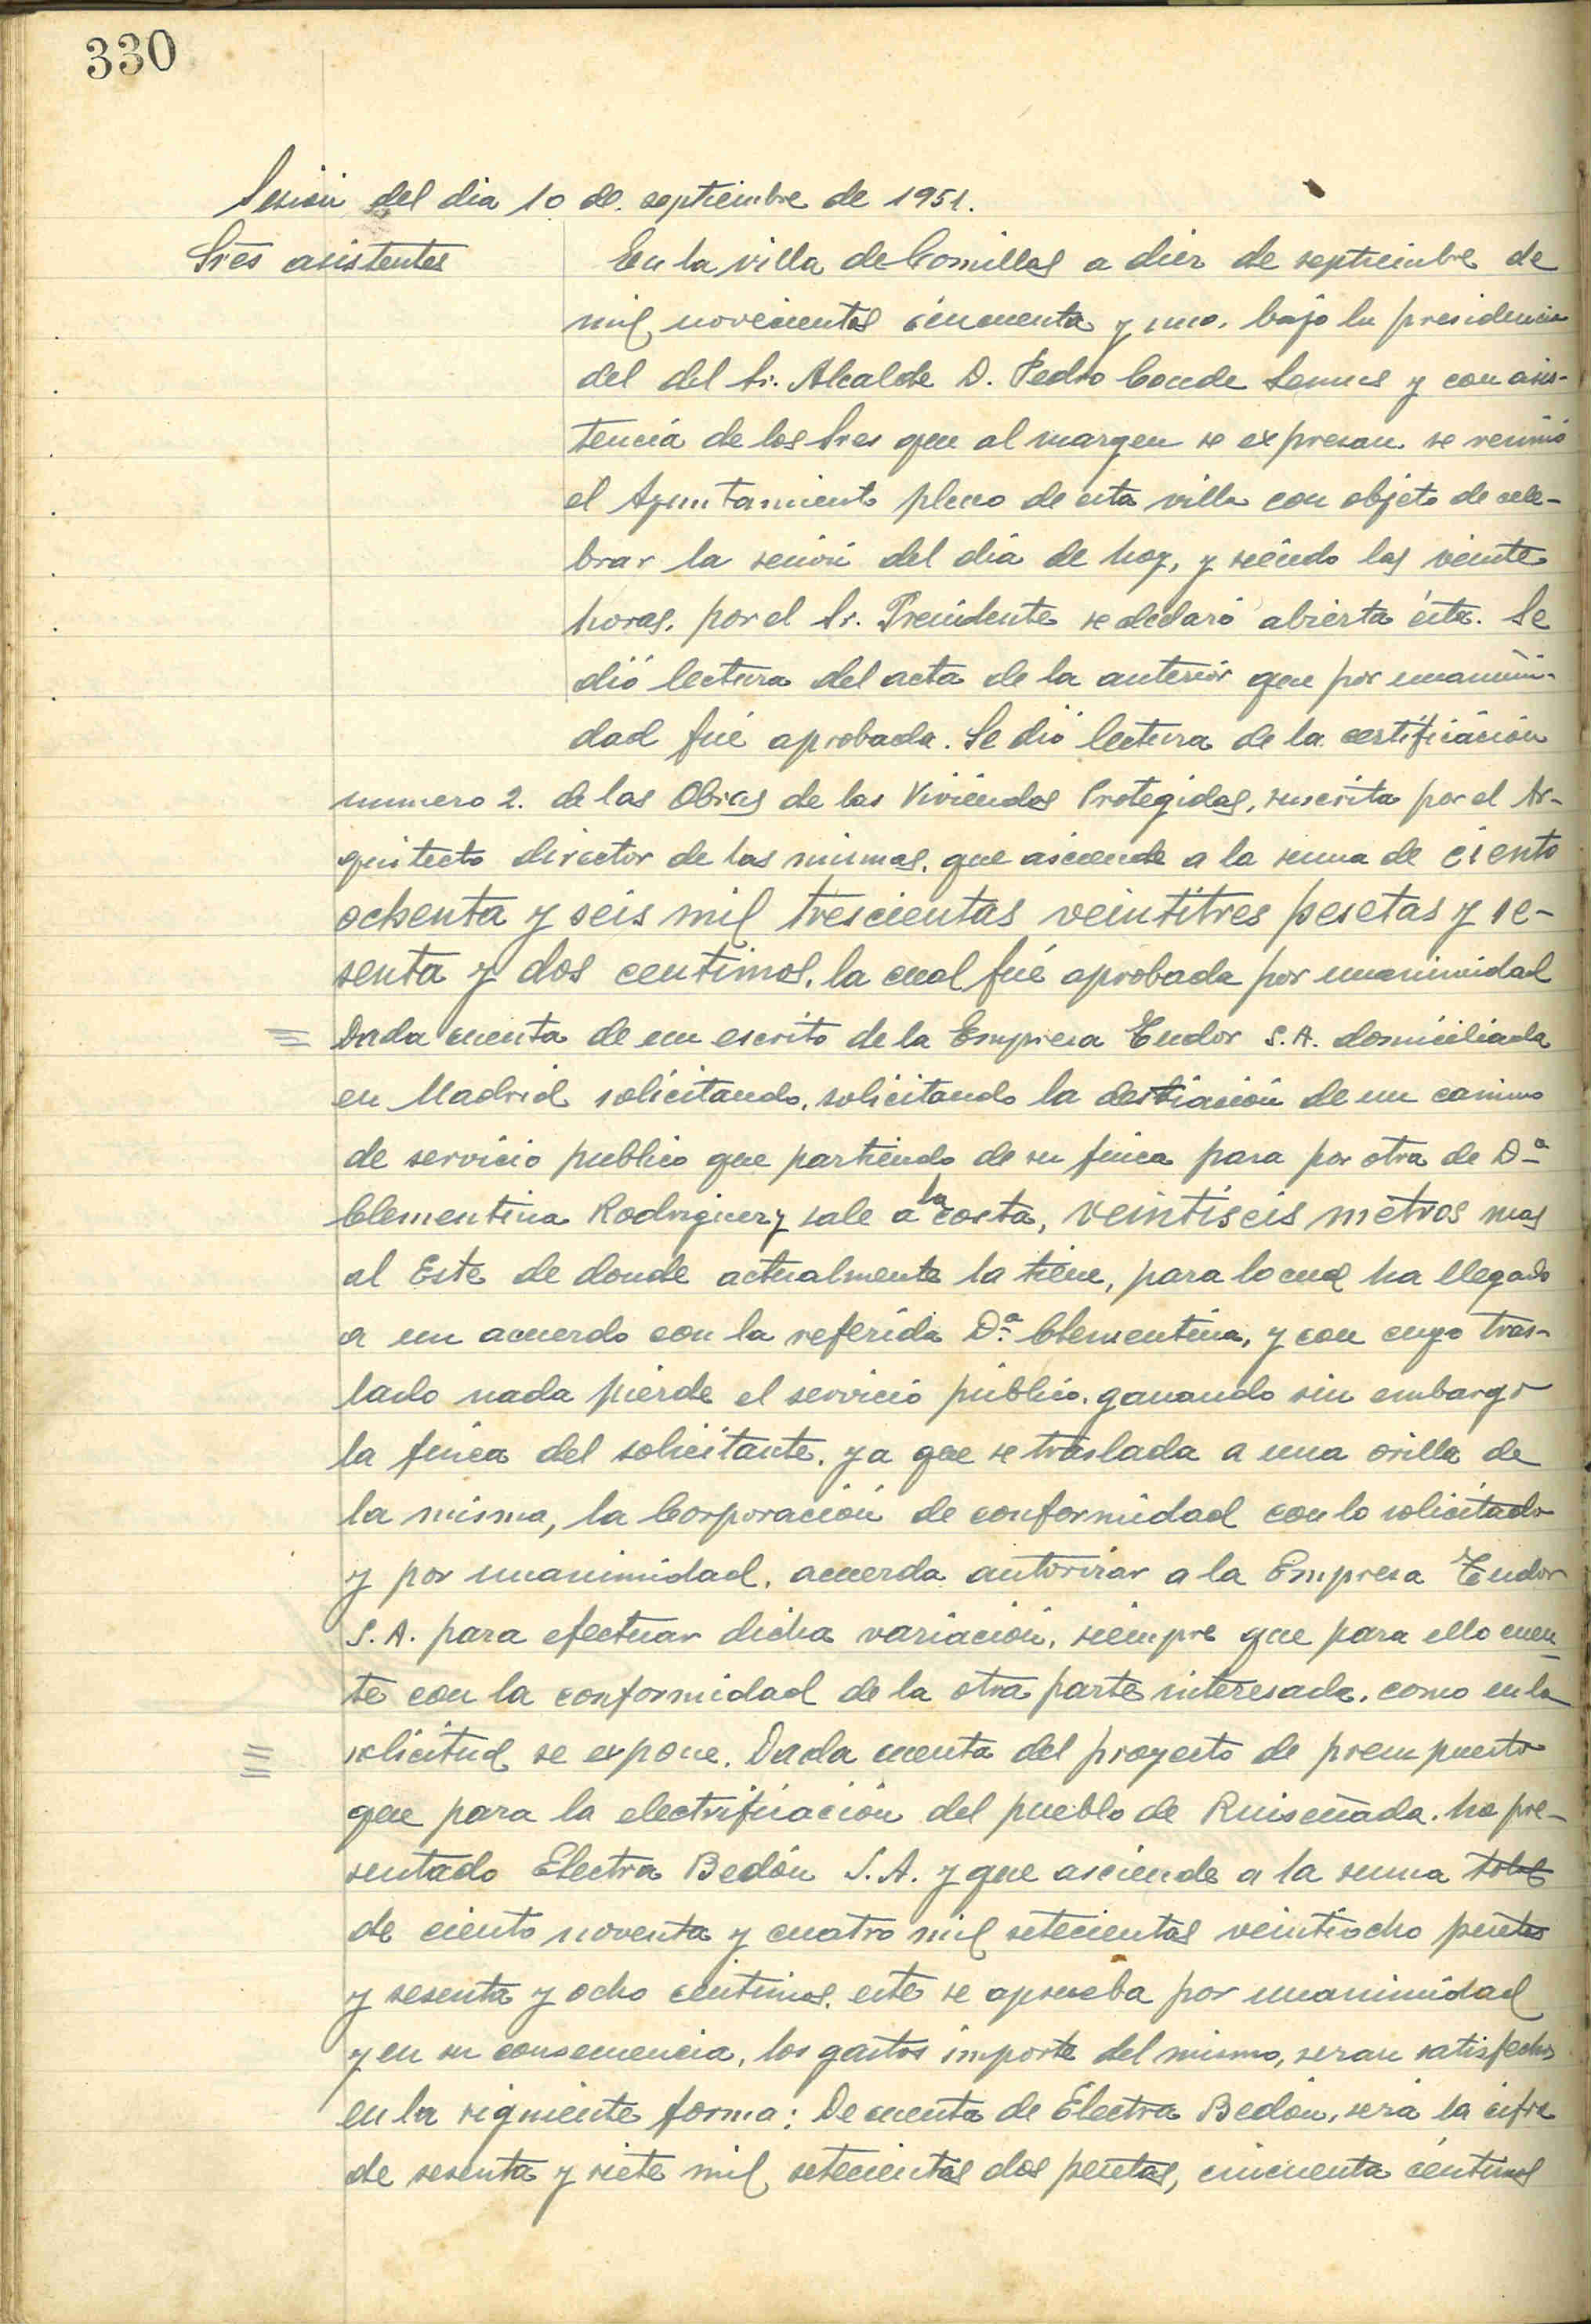 330
Sesión del dia 10 de septiembre de 1951.
Sres asistentes
En la villa de Comillas a diez de septiembre de
mil novecientos cincuenta y uno, bajo la presidencia
del del Sr. Alcalde D. Pedro Conde y con asis-
tencia de los Sres que al margen se expresan se reunió
el Ayuntamiento pleno de esta villa con objeto de cele-
brar la sesión del día de hoy, y siendo las veinte
horas, por el Sr. Presidente se declaró abierta ésta. Se
dió lectura del acta de la anterior que por unanimi-
dad fué aprobada. Se dió lectura de la certificación
numero 2. de las Obras de las Viviendas Protegidas, suscrita por el Ar-
quitecto director de las mismas, que asciende a la suma de ciento
ochenta y seis mil trescientas veintitres pesetas y se-
senta y dos centimos, la cual fué aprobada por unanimidad
Dada cuenta de un escrito de la Empresa Tudor S.A. domiciliada
en Madrid solicitando, solicitando la desviación de un camino
de servicio publico que partiendo de su finca pasa por otra de Dª
Clementina Rodriguez y sale a la costa, veintiseis metros mas
al Este de donde actualmente la tiene, para lo cual ha llegado
a un acuerdo con la referida Dª. Clementina, y con cuyo tras-
lado nada pierde el servicio público, ganando sin embargo
la finca del solicitante, ya que se traslada a una orilla de
la misma, la Corporación de conformidad con lo solicitado
y por unanimidad, acuerda autorizar a la Empresa Tudor
S.A. para efectuar dicha variación, siempre que para ello cuen-
te con la conformidad de la otra parte interesada, como en la
solicitud se expone. Dada cuenta del proyecto de presupuesto
que para la electrificación del pueblo de Ruiseñada, ha pre-
sentado Electra Bedón S.A. y que asciende a la suma
de ciento noventa y cuatro mil setecientas veintiocho pesetas
y sesenta y ocho centimos, este se aprueba por unanimidad
y en su consecuencia, los gastos importe del mismo, seran satisfechos
en la siguiente forma: De cuenta de Electra Bedón, será la cifra
de sesenta y siete mil setecientas dos pesetas, cincuenta céntimos